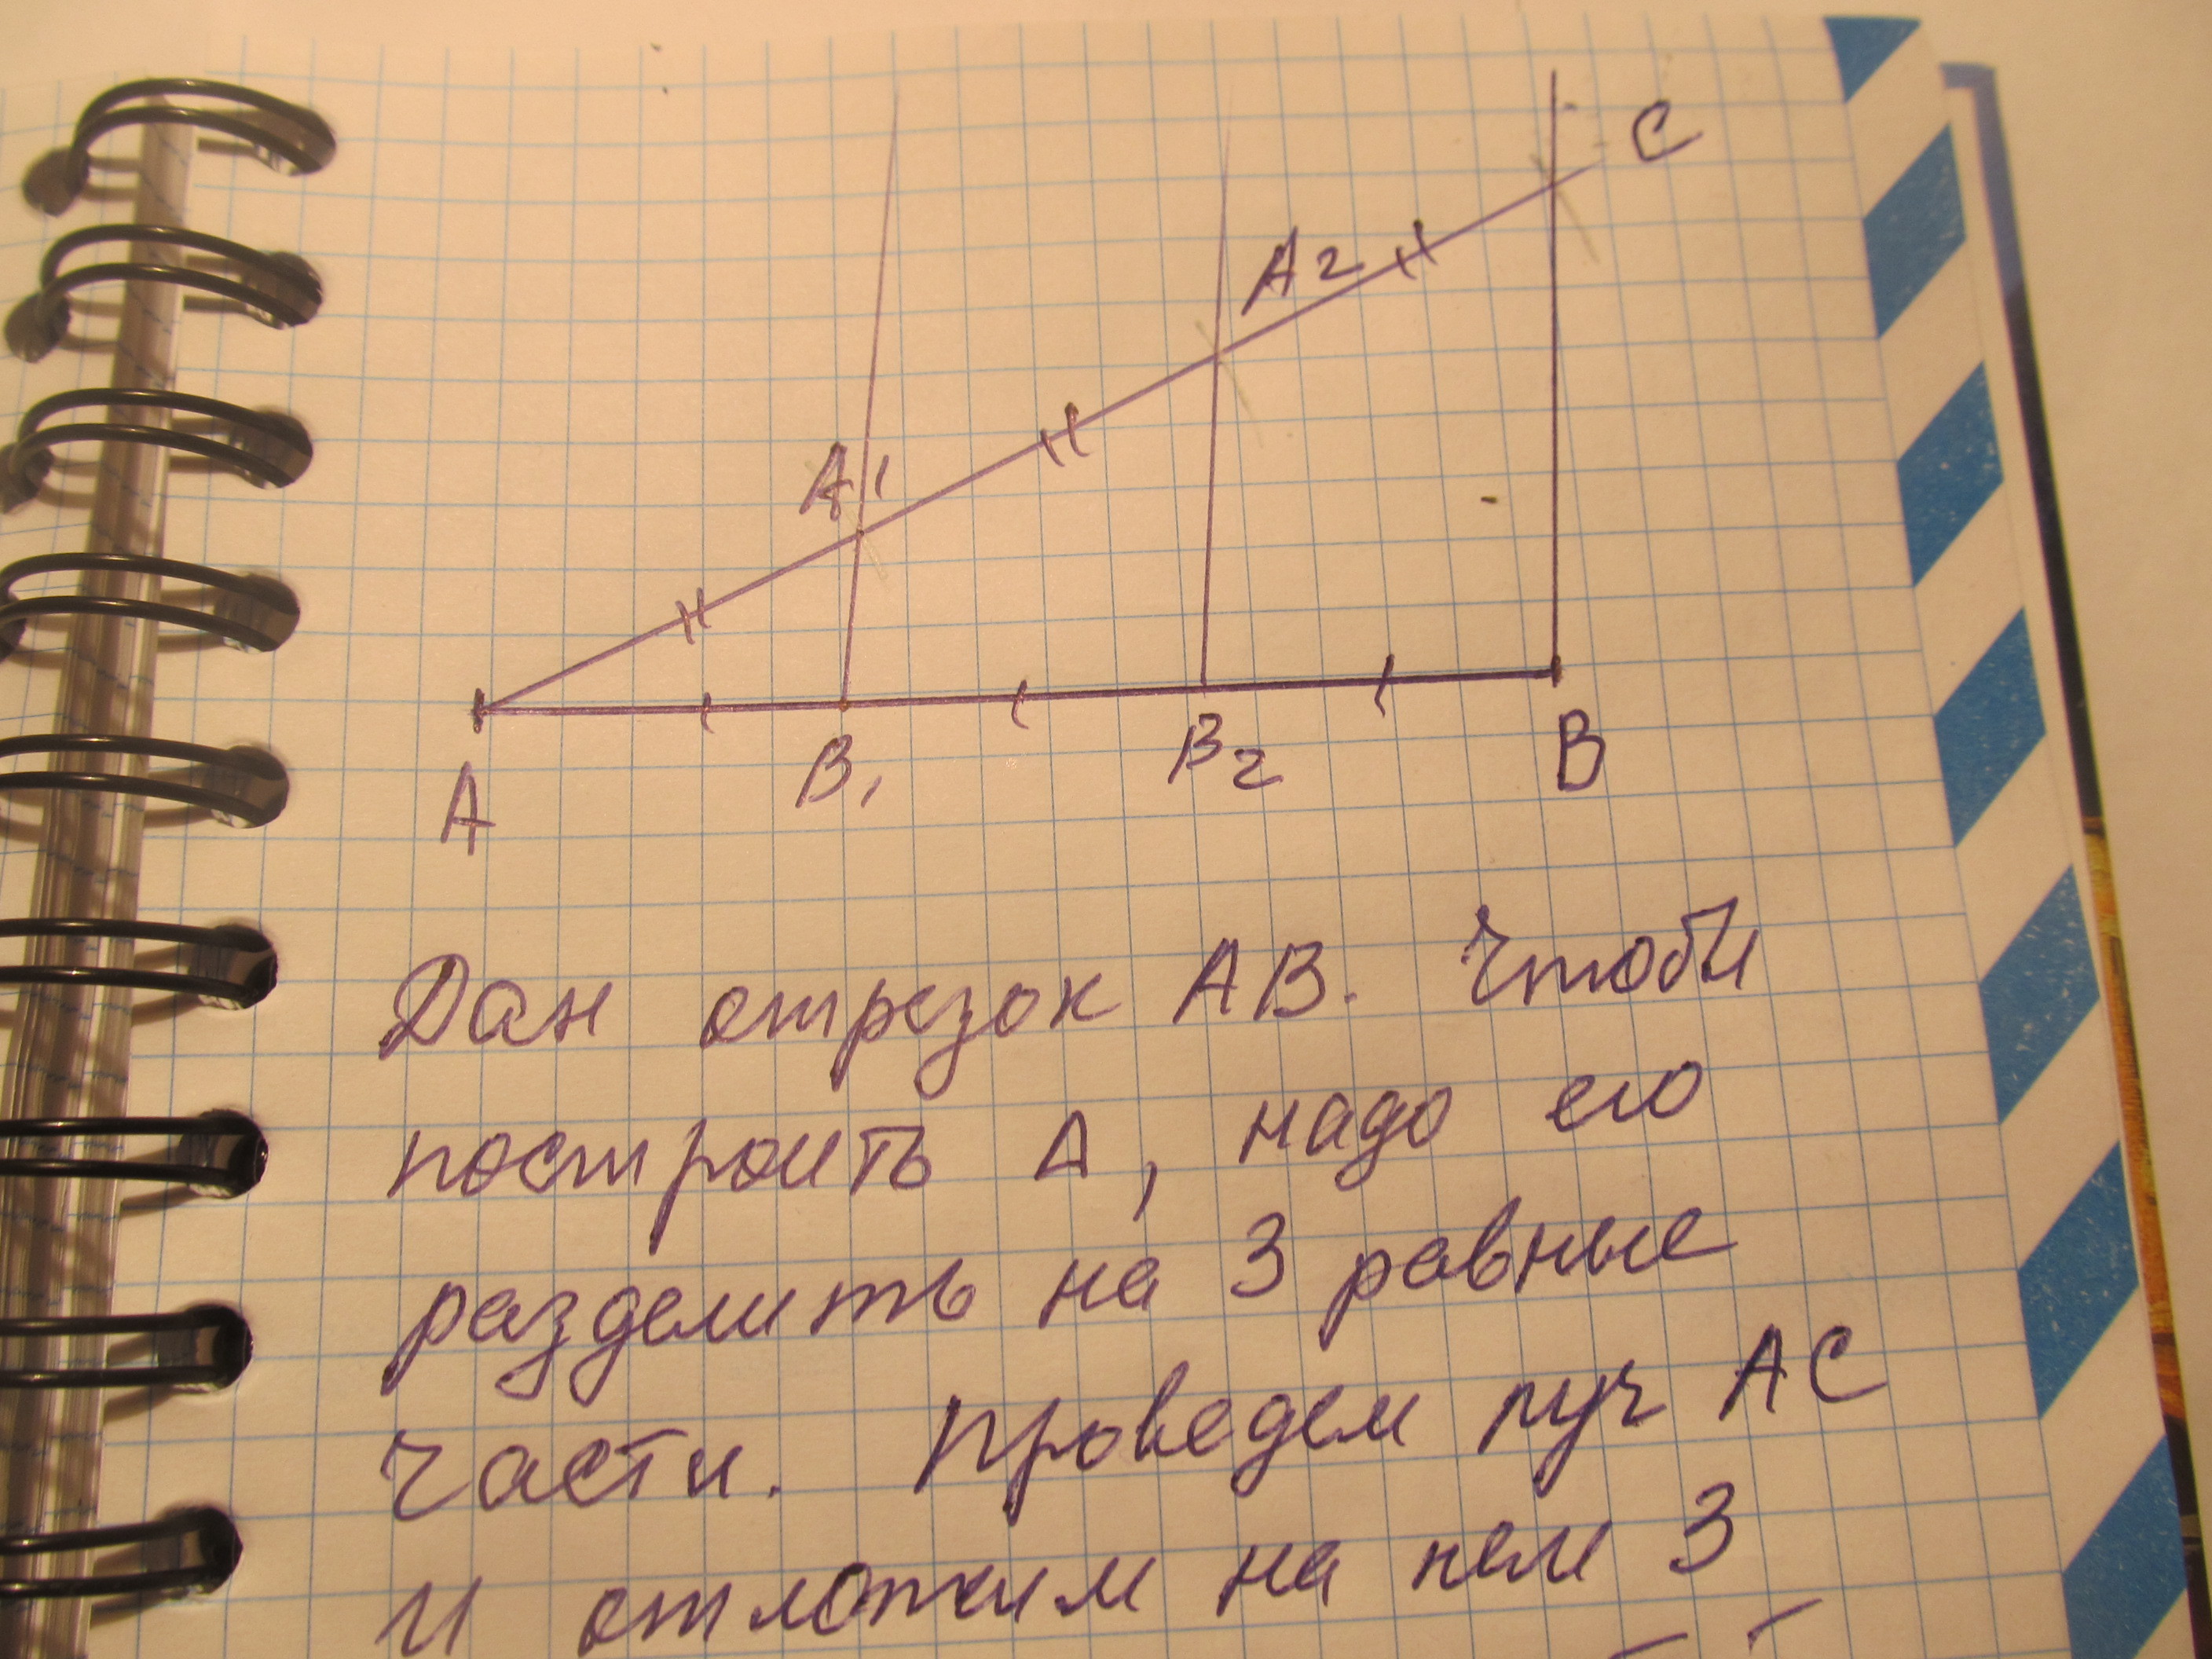 C
A2
A1
A B1 B2 B
Дан отрезок AB. Чтобы
построить Δ, надо его
разделить на 3 равные
части. Проведем луч AC
и отложим на нем 3